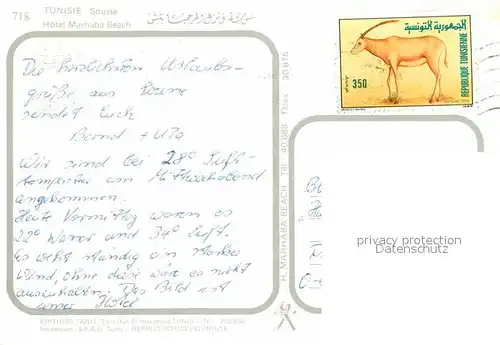 718 TUNISIE Sousse
Hôtel Marhaba Beach
Die herzlichsten Urlaubs-
grüße aus
sendet Euch
Bernd + Uta
Wir sind bei 28° Luft-
temperatur am Mittwochabend
angekommen.
Heute Vormittag waren es
22° Wasser und 34° Luft.
Es weht ständig ein starker
Wind, ohne diese wäre es nicht
auszuhalten. Das Bild ist
unser Hotel
EDITIONS TANIT
H. MARHABA BEACH Tél. 40/088 Télex 30 816
الجمهورية التونسية
350
REPUBLIQUE TUNISIENNE
privacy protection
Datenschutz